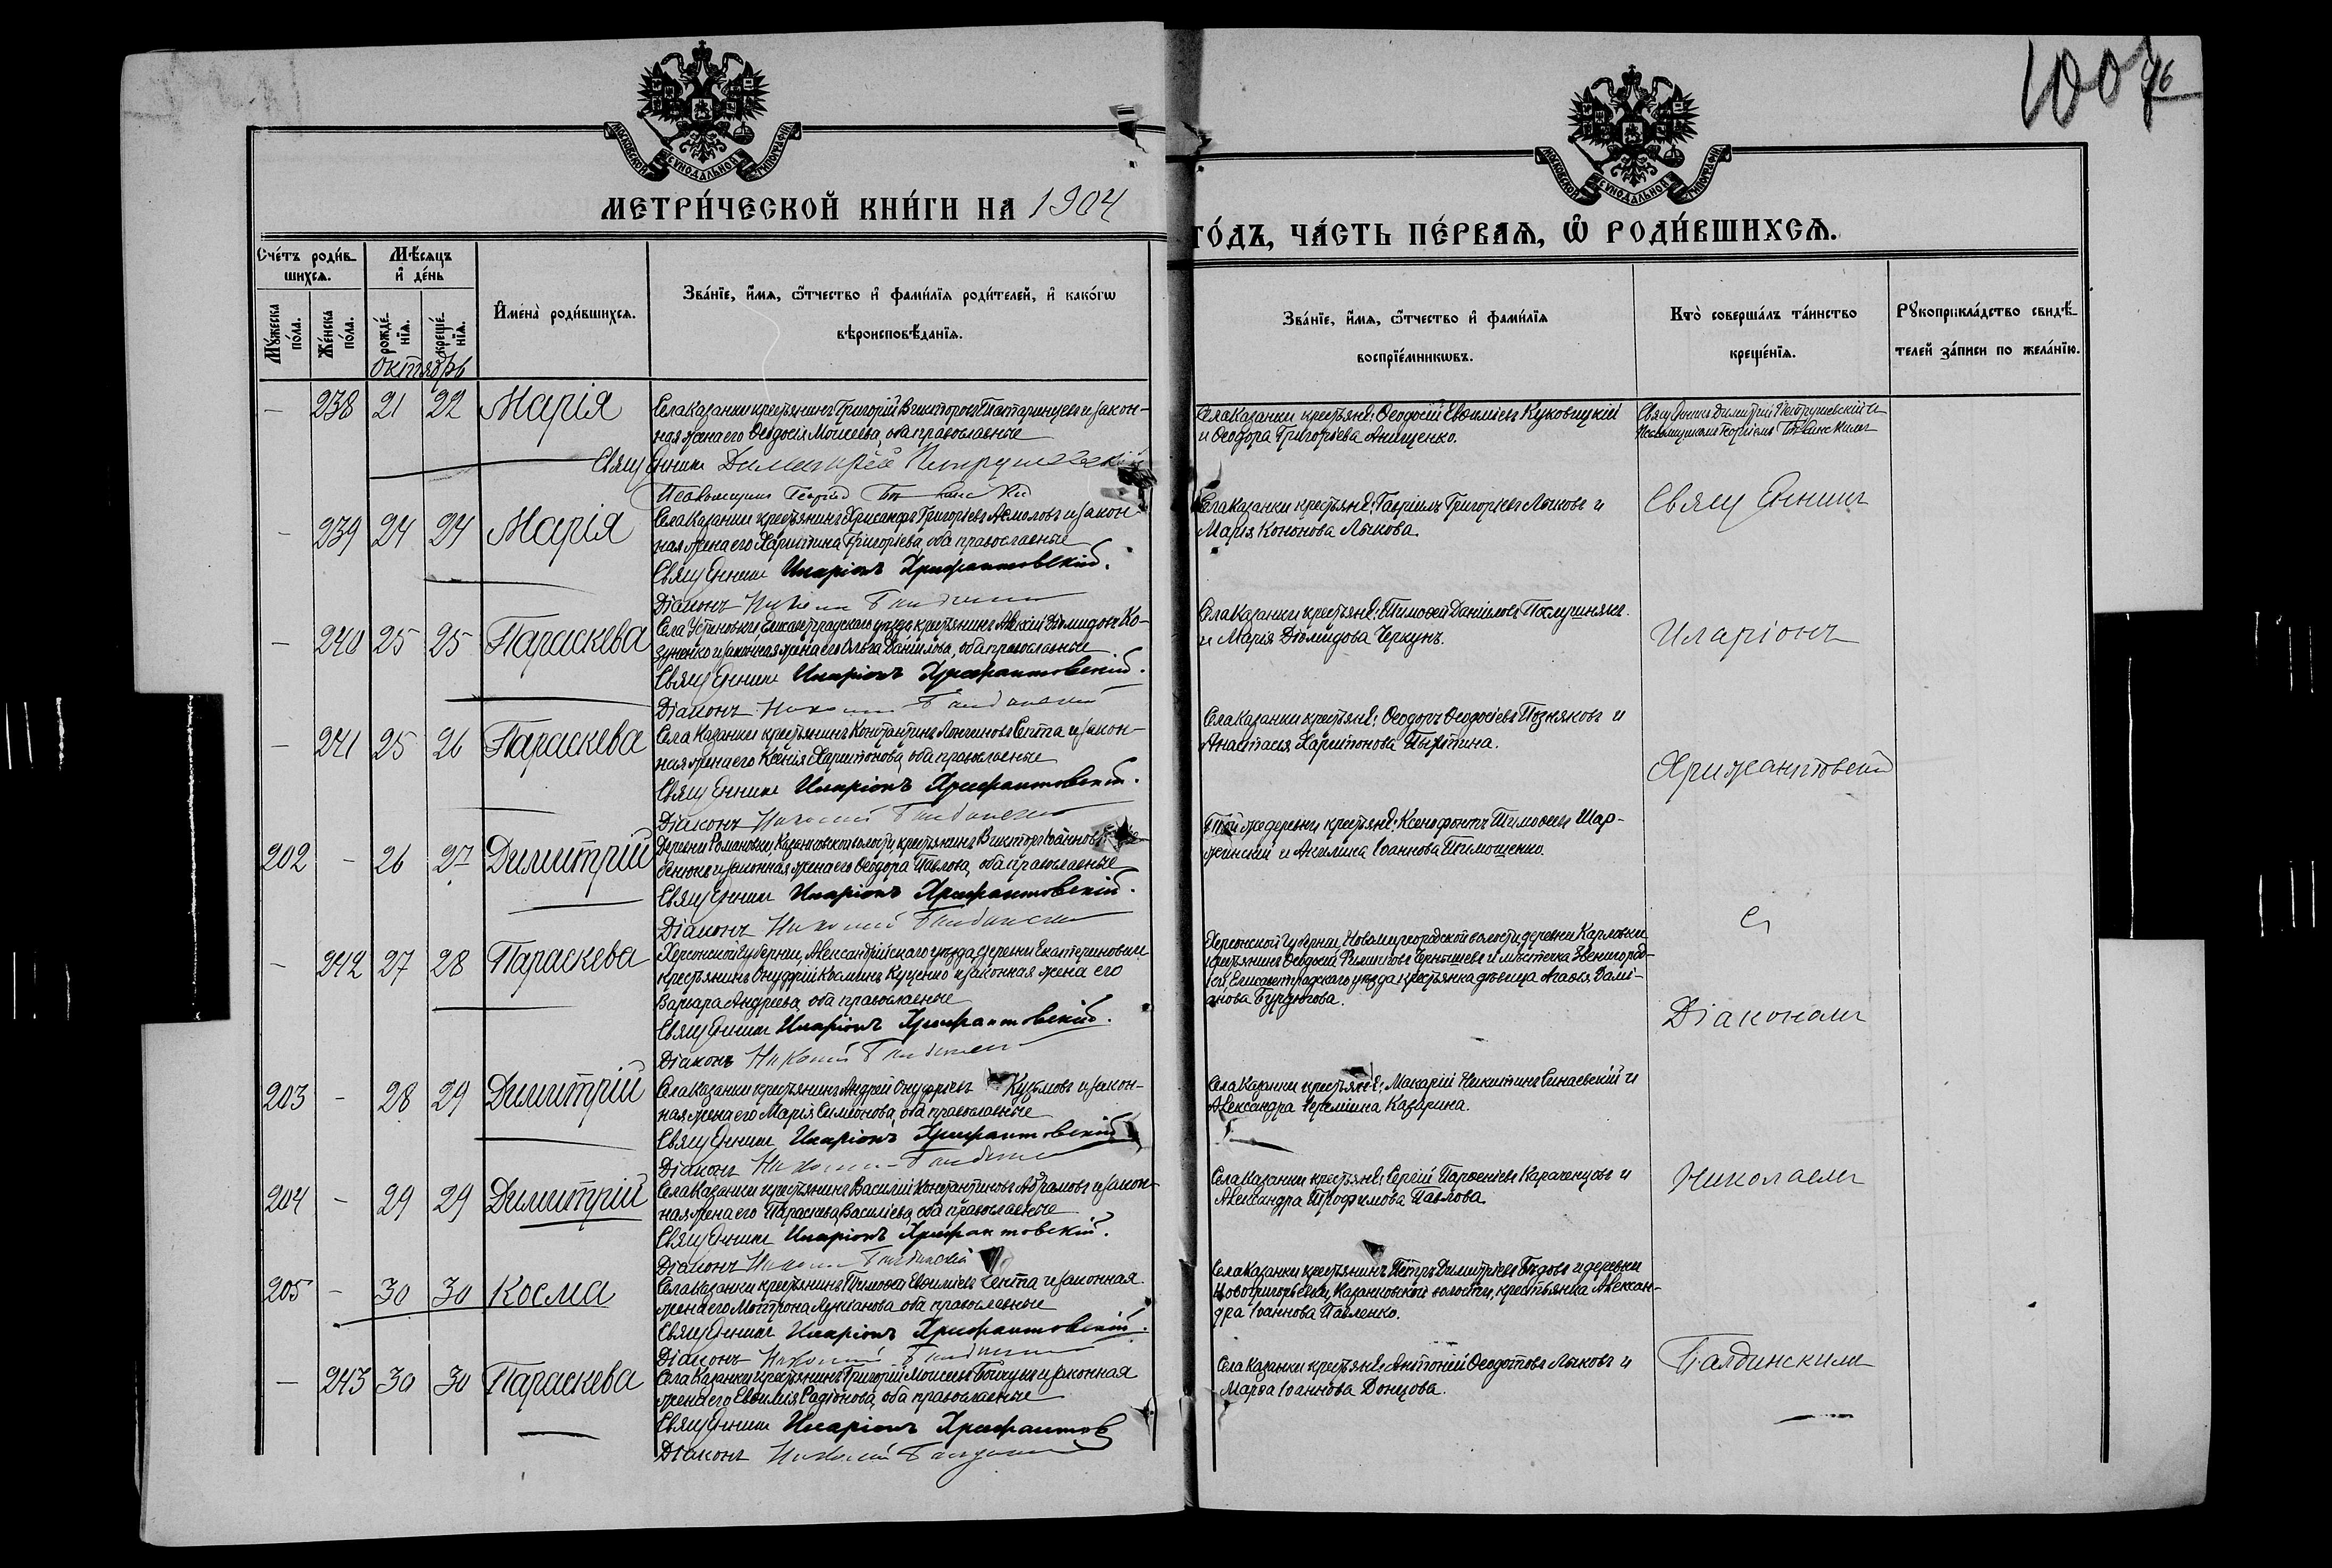 100 96
МОСКОВСКОЙ СѴНОДАЛЬНОЙ ТИПОГРАФІИ
МОСКОВСКОЙ СѴНОДАЛЬНОЙ ТИПОГРАФІИ
МЕТРИ́ЧЕСКОЙ КНИ́ГИ НА 1904
ГО́ДЪ, ЧА́СТЬ ПЕ́РВАѦ, Ѿ РОДИ́ВШИХСѦ.
Сче́тъ роди́в-
шихсѧ.
Мꙋ́жеска
по́ла.
Же́нска
по́ла.
Мѣ́сѧцъ
и҆ де́нь
рожде́-
нїѧ.
креще́-
нїѧ.
Октябрь
И҆мена̀ роди́вшихсѧ.
Зва́нїе, и҆́мѧ, ѻ҆́тчество и҆ фами́лїѧ роди́телей, и҆ како́гѡ
вѣроисповѣ́данїѧ.
Зва́нїе, и҆́мѧ, ѻ҆́тчество и҆ фами́лїѧ
воспрїе́мникѡвъ.
Кто̀ соверша́лъ та́инство
креще́нїѧ.
Рꙋкоприкла́дство свидѣ́-
телей за́писи по жела́нїю.
– 238 21 22 Марія
Села Казанки крестьянинъ Григорій Викторовъ и закон-
ная жена его Ѳеодосія Моисеева, оба православные
Священникъ Димитрій Петрушевскій
Псаломщикъ Георгій
Села Казанки крестьяне: Ѳеодосій Евѳиміевъ Куковицкій
и Ѳеодора Григорьева Анищенко.
Священникъ Димитрій Петрушевскій и
Псаломщикомъ Георгіемъ
– 239 24 24 Марія
Села Казанки крестьянинъ Хрисанѳъ Григорьевъ Асмоловъ и закон
ная жена его Харитина Григорьева, оба православные
Священникъ Иларіонъ Хрисанфовскій.
Діаконъ Николай
Села Казанки крестьяне: Гавріилъ Григорьевъ Лыковъ и
Марія Кононова Лыкова.
Священникъ
– 240 25 25 Параскева
Села Устиновки, Елисаветградскаго уѣзда крестьянинъ Алексій Діомидовъ Ко-
зуненко и законная жена его Ольга Даніилова, оба православные
Священникъ Иларіонъ
Діаконъ Николай
Села Казанки крестьяне: Тимоѳей Даніиловъ
и Марія Діомидова Черкунъ.
Иларіонъ
– 241 25 26 Параскева
Села Казанки крестьянинъ Константинъ Лонгиновъ Септа и закон-
ная жена его Ксенія Харитонова, оба православные
Священникъ Иларіонъ
Діаконъ Николай
Села Казанки крестьяне: Ѳеодоръ Ѳеодосіевъ Позняковъ и
Анастасія Харитонова
202 – 26 27 Димитрій
Деревни Романовки Казанковской волости, крестьянинъ Викторъ Іоанновъ
и законная жена его Ѳеодора Павлова, оба православные
Священникъ Иларіонъ
Діаконъ Николай
Той же деревни крестьяне: Ксенофонтъ Тимоѳеевъ Шар-
жинскій и Акилина Іоаннова Тимошенко.
Съ
– 242 27 28 Параскева
Херсонской губерніи, Александрійскаго уѣзда, деревни Екатериновки
крестьянинъ Онуфрій Косьминъ Куценко и законная жена его
Варвара Андреева, оба православные
Священникъ Иларіонъ
Діаконъ Николай
Херсонской губерніи, Новомиргородской волости, деревни Карловки
крестьянинъ Ѳеодосій Филипповъ Чернышевъ и мѣстечка Звенигород-
ки, Елисаветградскаго уѣзда крестьянка дѣвица Агаѳія Дамі-
анова Бурдюгова.
Діакономъ
203 – 28 29 Димитрій
Села Казанки крестьянинъ Андрей Онуфріевъ Кузьмовъ и закон-
ная жена его Марія Симеонова, оба православные
Священникъ Иларіонъ
Діаконъ Николай
Села Казанки крестьяне: Макарій Никитинъ Синаевскій и
Александра Іереміина Казарина.
204 – 29 29 Димитрій
Села Казанки крестьянинъ Василій Константиновъ Абрамовъ и закон-
ная жена его Параскева Василіева, оба православные
Священникъ Иларіонъ
Діаконъ Николай
Села Казанки крестьяне: Сергій Парѳеніевъ Караченцовъ и
Александра Трофимова Павлова.
Николаемъ
205 – 30 30 Косма
Села Казанки крестьянинъ Тимоѳей Евѳиміевъ Септа и законная
жена его Мотрона Лукіанова, оба православные
Священникъ Иларіонъ
Діаконъ Николай
Села Казанки крестьянинъ Петръ Димитріевъ Бѣдовъ и деревни
Новогригорьевки, Казанковской волости, крестьянка Алексан-
дра Іоаннова Павленко.
– 243 30 30 Параскева
Села Казанки крестьянинъ Григорій Моисеевъ Бойчукъ и законная
жена его Евѳимія Родіонова, оба православные
Священникъ Иларіонъ
Діаконъ Николай
Села Казанки крестьяне: Антоній Ѳеодотовъ Лыковъ и
Марѳа Іоаннова Донцова.
Балдинскимъ